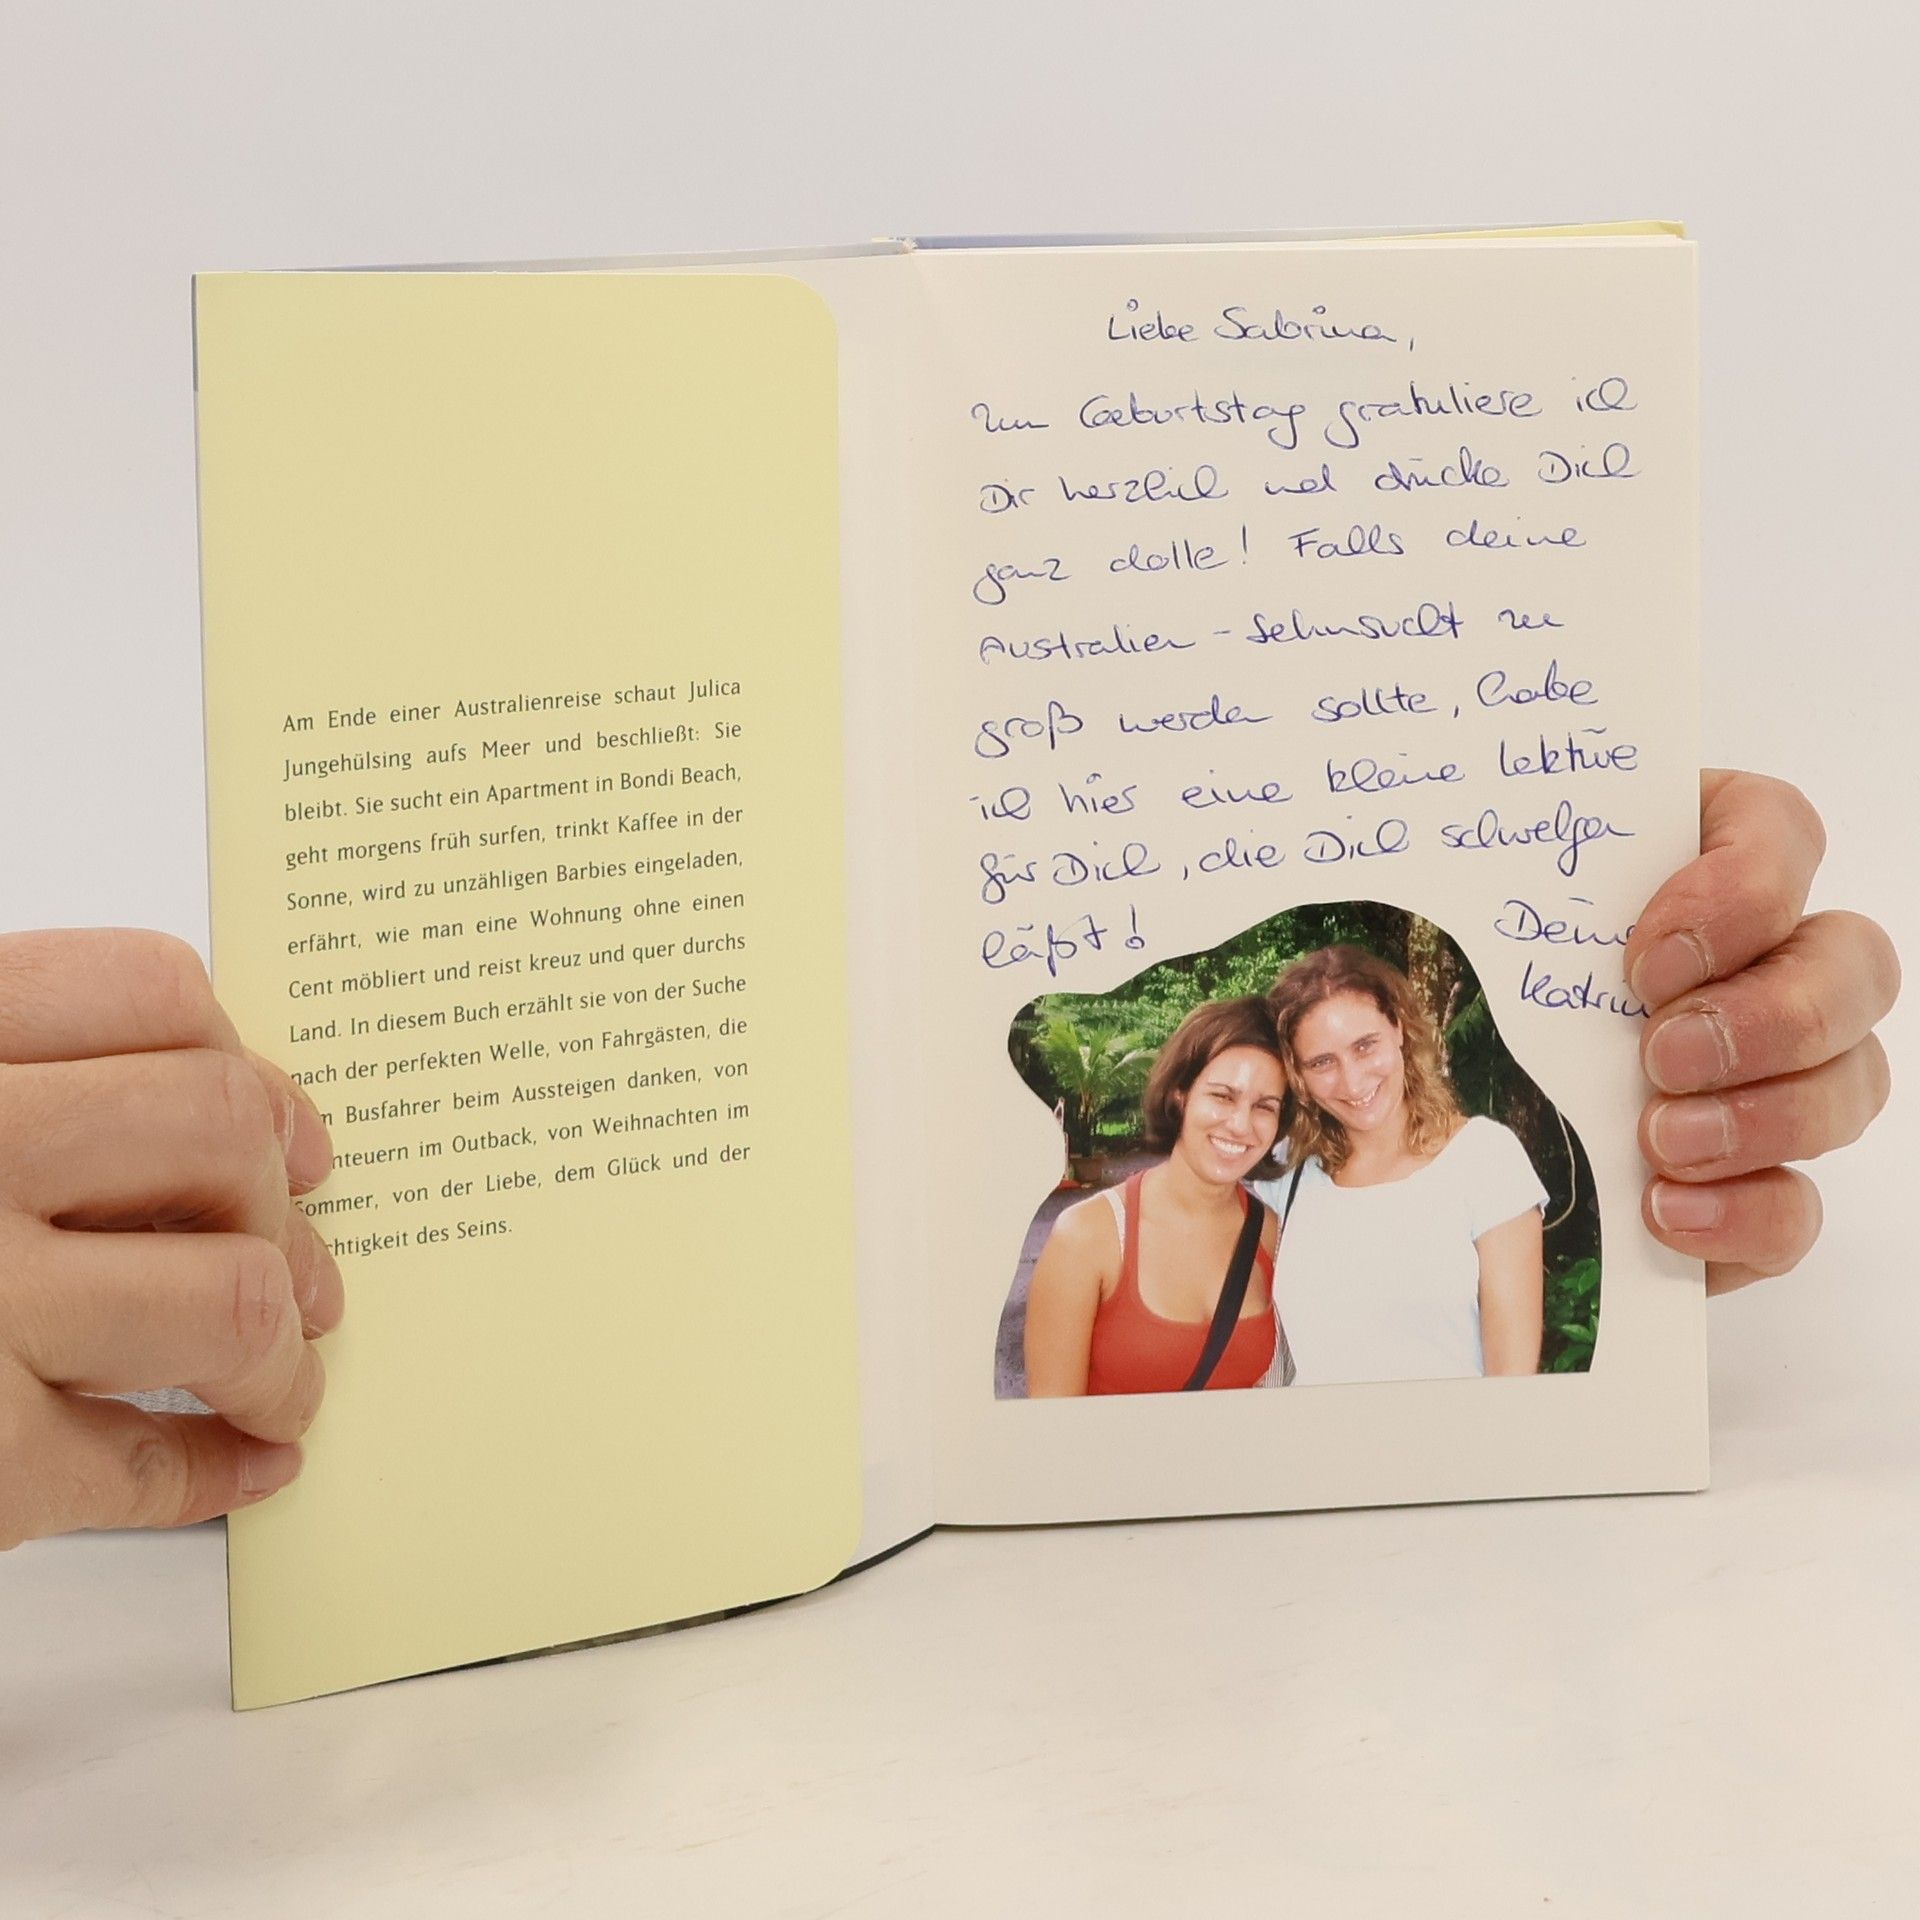 Am Ende einer Australienreise schaut Julica
Jungehülsing aufs Meer und beschließt: Sie
bleibt. Sie sucht ein Apartment in Bondi Beach,
geht morgens früh surfen, trinkt Kaffee in der
Sonne, wird zu unzähligen Barbies eingeladen,
erfährt, wie man eine Wohnung ohne einen
Cent möbliert und reist kreuz und quer durchs
Land. In diesem Buch erzählt sie von der Suche
nach der perfekten Welle, von Fahrgästen, die
Busfahrer beim Aussteigen danken, von
nteuern im Outback, von Weihnachten im
Sommer, von der Liebe, dem Glück und der
chtigkeit des Seins.
Liebe Sabrina,
Zum Geburtstag gratuliere ich
Dir herzlich und drücke Dich
ganz dolle! Falls deine
Australien-Sehnsucht zu
groß werden sollte, habe
ich hier eine kleine Lektüre
für Dich, die Dich schwelgen
läßt!
Deine
Katrin